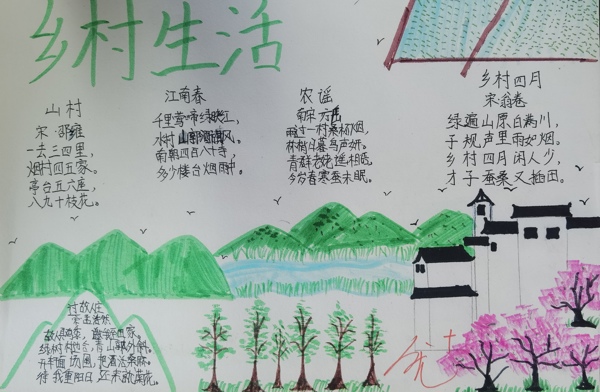 乡村生活
山村
宋·邵雍
一去三四里，
烟村四五家。
亭台五六座，
八九十枝花。
江南春
千里莺啼绿映红，
水村山郭酒旗风。
南朝四百八十寺，
多少楼台烟雨中。
农谣
南宋 方岳
雨过一村桑柘烟，
林梢日暮鸟声妍。
青群老姥遥相语，
今岁春寒蚕未眠。
乡村四月
宋·翁卷
绿遍山原白满川，
子规声里雨如烟。
乡村四月闲人少，
才子蚕桑又插田。
过故人庄
孟浩然
故人具鸡黍，邀我至田家。
绿树村边合，青山郭外斜。
开轩面场圃，把酒话桑麻。
待我重阳日，还来就菊花。
优